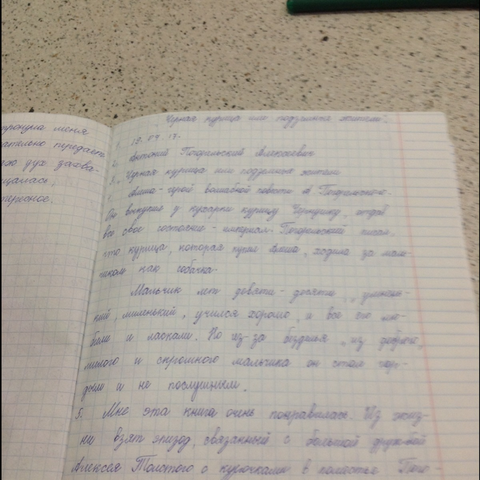 Чёрная курица или подземные жители.
1. 13.07.17.
2. Антоний Погорельский Алексеевич
3. Чёрная курица или подземные жители
4. Алёша - герой волшебной повести А Погорельского.
Он выкупил у кухарки курицу Чернушку, отдав
все своё состояние - империал. Погорельский писал,
что курица, которая купил Алёша, ходила за маль-
чиком как собачка.
Мальчик лет девяти - десяти,
миленький, учился хорошо, и все его лю-
били и ласкали. Но из-за безделия, из доброго,
милого и скромного мальчика он стал гор-
дым и не послушным.
5. Мне эта книга очень понравилась. Из жиз-
ни взят эпизод, связанный с большой дружбой
Алексея Толстого с курочками в поместье
черкнула меня
дух захва-
щалась,
тересное.